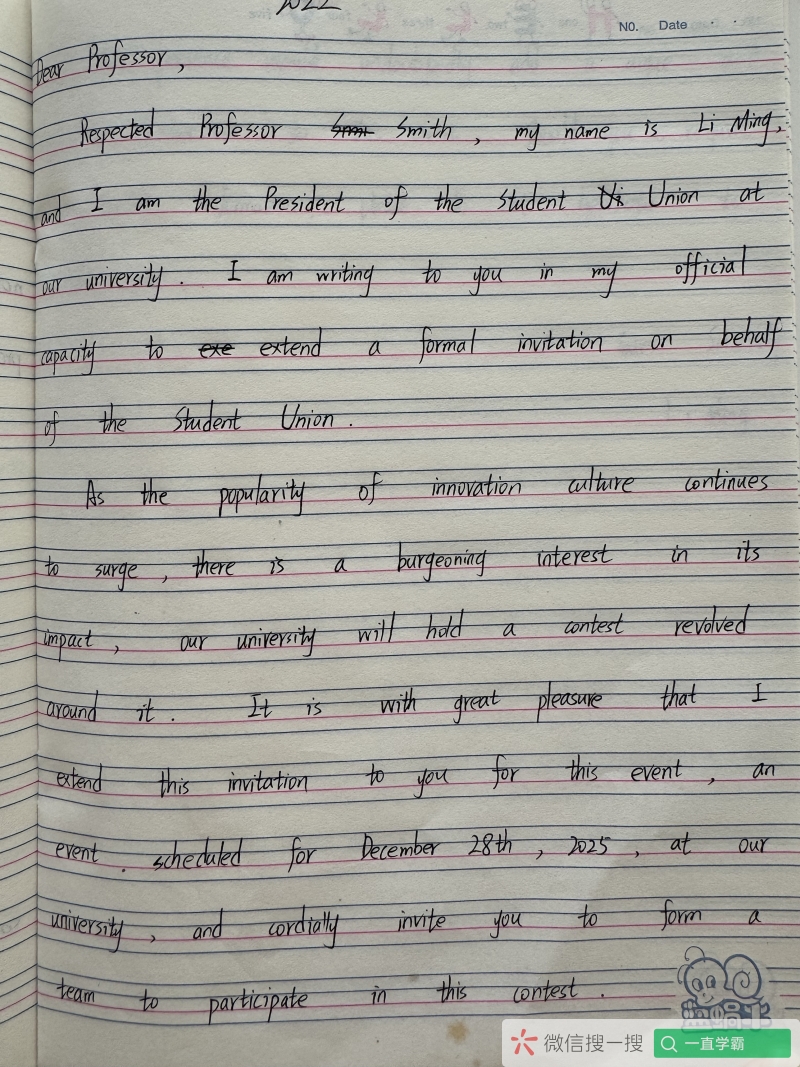 2022
NO. Date
Dear Professor,
Respected Professor Smith, my name is Li Ming,
and I am the President of the Student Union at
our university. I am writing to you in my official
capacity to extend a formal invitation on behalf
of the Student Union.
As the popularity of innovation culture continues
to surge, there is a burgeoning interest in its
impact, our university will hold a contest revolved
around it. It is with great pleasure that I
extend this invitation to you for this event, an
event. scheduled for December 28th, 2025, at our
university, and cordially invite you to form a
team to participate in this contest.
微信搜一搜
一直学霸